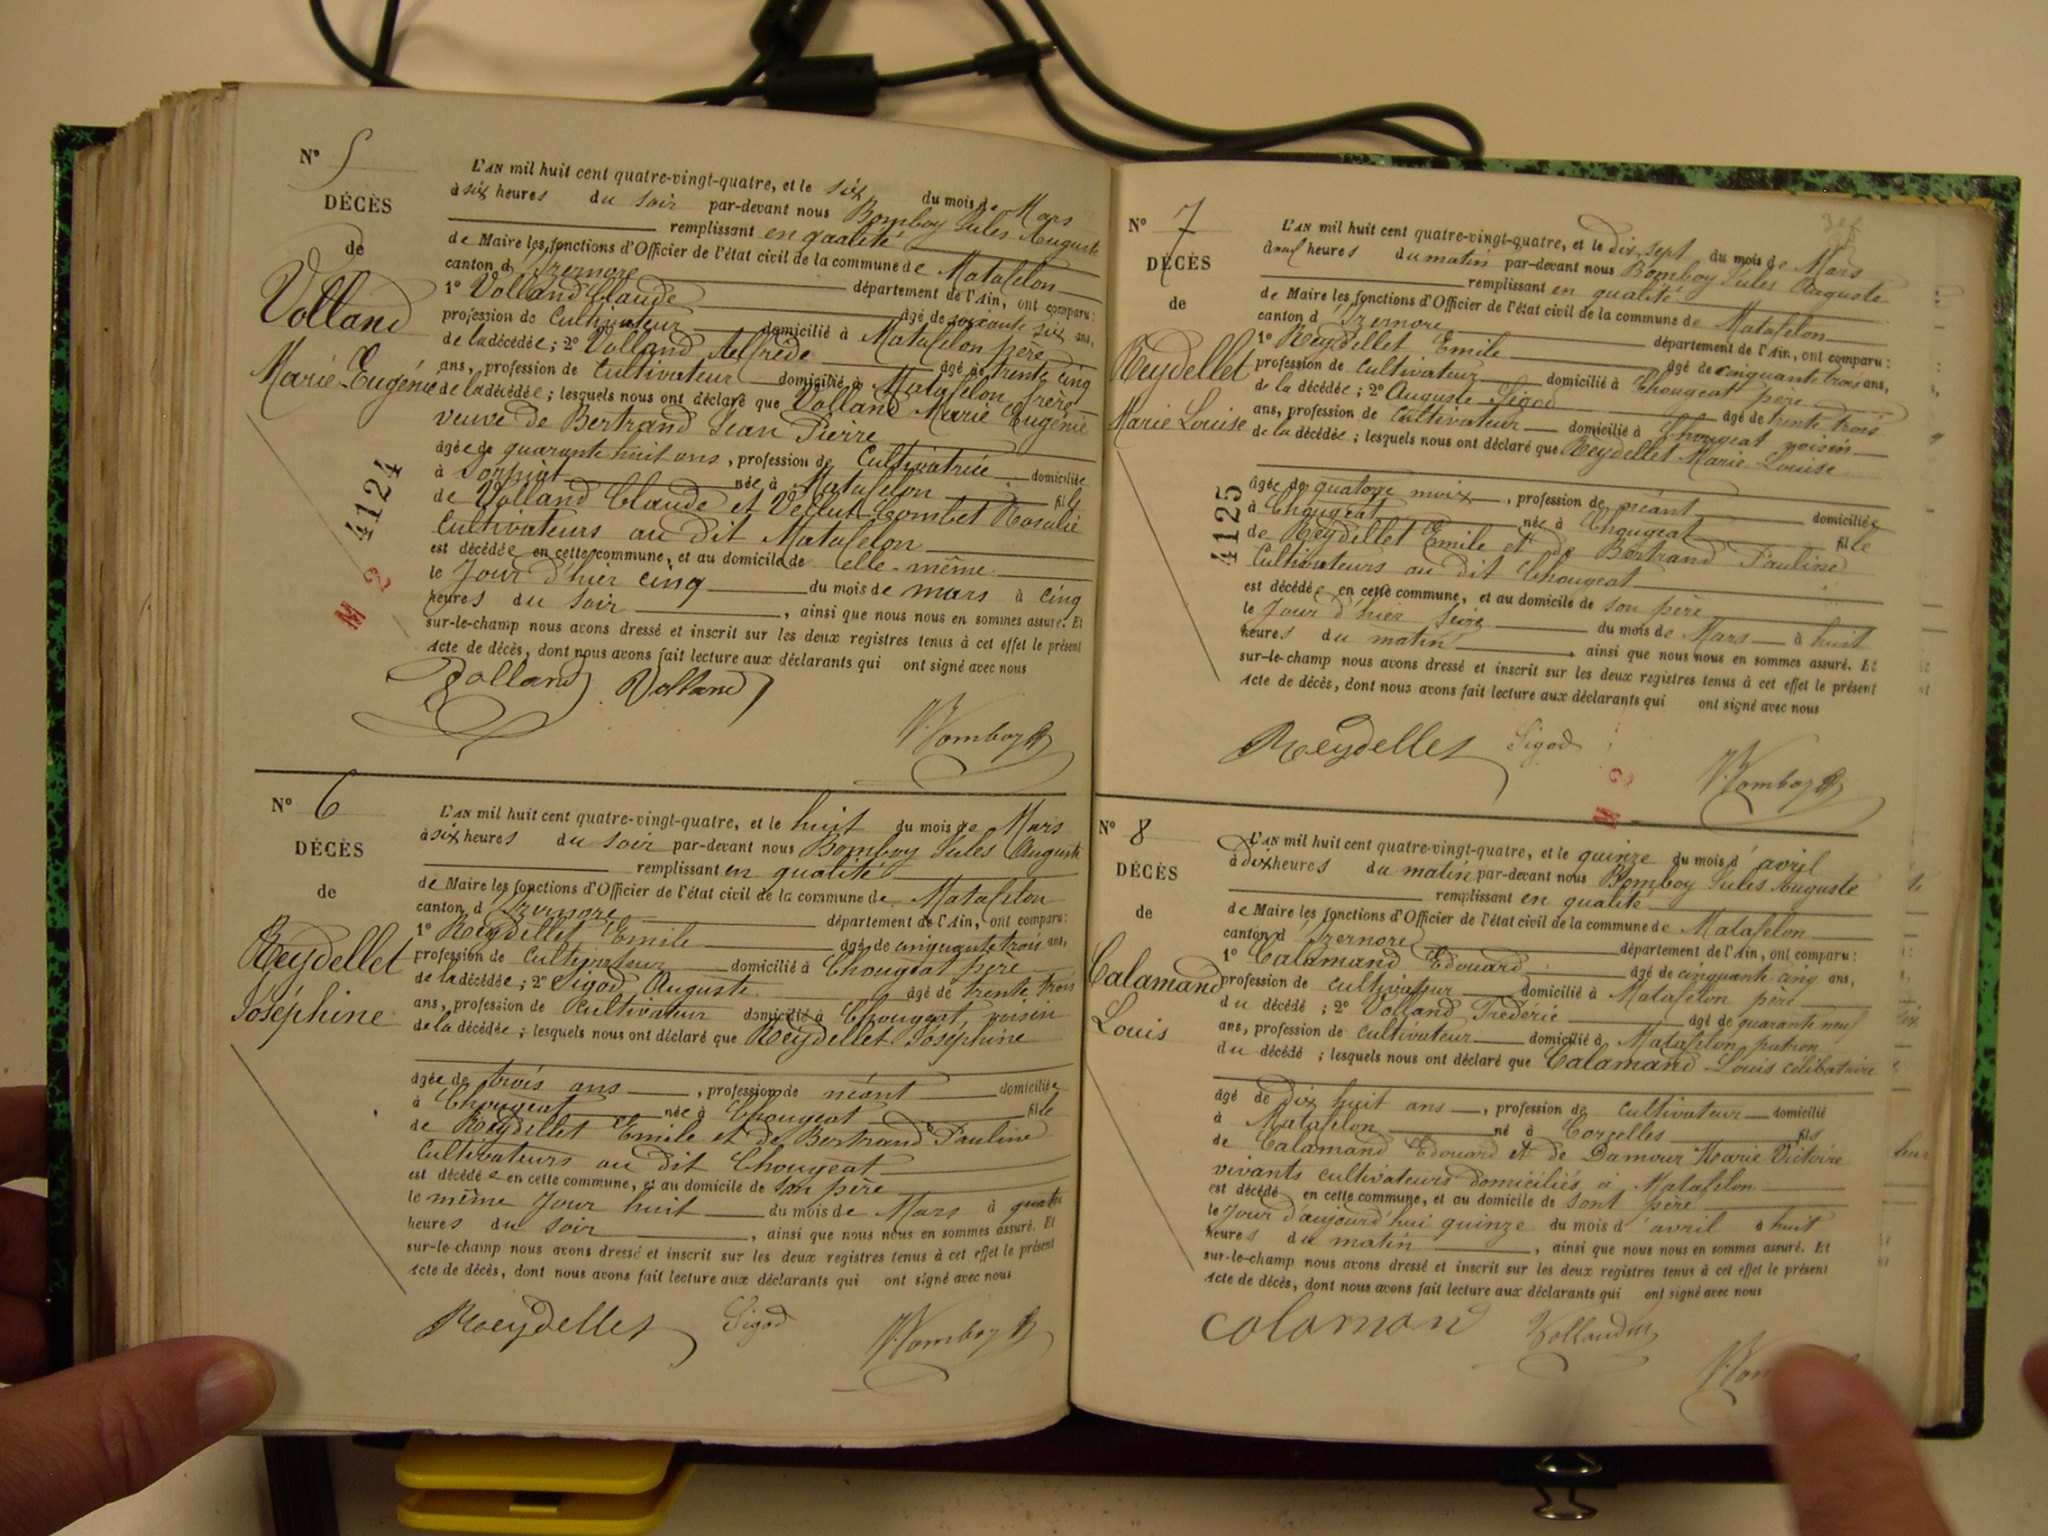 N° 5
DÉCÈS
de
Volland
Marie-Eugénie
4124
M 2
L'AN mil huit cent quatre-vingt-quatre, et le six du mois de Mars
à six heures du soir par-devant nous Bomboy Jules Auguste
remplissant en qualité
de Maire les fonctions d'Officier de l'état civil de la commune de Matafelon
canton d'Izernore département de l'Ain, ont comparu:
1° Volland Claude âgé de soixante six ans,
profession de Cultivateur domicilié à Matafelon père
de la décédée; 2° Volland Alfrède âgé de trente cinq
ans, profession de Cultivateur domicilié à Matafelon frère
de la décédée; lesquels nous ont déclaré que Volland Marie Eugénie
veuve de Bertrand Jean Pierre
âgée de quarante huit ans, profession de Cultivatrice domiciliée
à Sorpiat née à Matafelon fille
de Volland Claude et Vellut-Combet Rosalie
Cultivateurs au dit Matafelon
est décédée en cette commune, et au domicile de elle-même
le Jour d'hier cinq du mois de mars à cinq
heures du soir, ainsi que nous nous en sommes assuré. Et
sur-le-champ nous avons dressé et inscrit sur les deux registres tenus à cet effet le présent
acte de décès, dont nous avons fait lecture aux déclarants qui ont signé avec nous
Volland Volland
Bomboy
N° 6
DÉCÈS
de
Reydellet
Joséphine
L'AN mil huit cent quatre-vingt-quatre, et le huit du mois de Mars
à six heures du soir par-devant nous Bomboy Jules Auguste
remplissant en qualité
de Maire les fonctions d'Officier de l'état civil de la commune de Matafelon
canton d'Izernore département de l'Ain, ont comparu:
1° Reydellet Emile âgé de cinquante trois ans,
profession de cultivateur domicilié à Chougeat père
de la décédée; 2° Sigod Auguste âgé de trente trois
ans, profession de Cultivateur domicilié à Chougeat voisin
de la décédée; lesquels nous ont déclaré que Reydellet Joséphine
âgée de trois ans, profession de néant domiciliée
à Chougeat née à Chougeat fille
de Reydellet Emile et de Bertrand Pauline
Cultivateurs au dit Chougeat
est décédée en cette commune, et au domicile de son père
le même Jour huit du mois de Mars à quatre
heures du soir, ainsi que nous nous en sommes assuré. Et
sur-le-champ nous avons dressé et inscrit sur les deux registres tenus à cet effet le présent
acte de décès, dont nous avons fait lecture aux déclarants qui ont signé avec nous
Reydellet Sigod Bomboy
N° 7
DÉCÈS
de
Reydellet
Marie Louise
4125
L'AN mil huit cent quatre-vingt-quatre, et le dix sept du mois de Mars
à neuf heures du matin par-devant nous Bomboy Jules Auguste
remplissant en qualité
de Maire les fonctions d'Officier de l'état civil de la commune de Matafelon
canton d'Izernore département de l'Ain, ont comparu:
1° Reydellet Emile âgé de cinquante trois ans,
profession de cultivateur domicilié à Chougeat père
de la décédée; 2° Auguste Sigod âgé de trente trois
ans, profession de Cultivateur domicilié à Chougeat voisin
de la décédée; lesquels nous ont déclaré que Reydellet Marie-Louise
âgée de quatorze moix, profession de néant domiciliée
à Chougeat née à Chougeat fille
de Reydellet Emile et de Bertrand Pauline
Cultivateurs au dit Chougeat
est décédée en cette commune, et au domicile de son père
le Jour d'hier Seize du mois de Mars à huit
heures du matin, ainsi que nous nous en sommes assuré. Et
sur-le-champ nous avons dressé et inscrit sur les deux registres tenus à cet effet le présent
acte de décès, dont nous avons fait lecture aux déclarants qui ont signé avec nous
Reydellet Sigod Bomboy
M 2
N° 8
DÉCÈS
de
Calamand
Louis
L'AN mil huit cent quatre-vingt-quatre, et le quinze du mois d'avril
à dix heures du matin par-devant nous Bomboy Jules Auguste
remplissant en qualité
de Maire les fonctions d'Officier de l'état civil de la commune de Matafelon
canton d'Izernore département de l'Ain, ont comparu:
1° Calamand Edouard âgé de cinquante cinq ans,
profession de cultivateur domicilié à Matafelon père
du décédé; 2° Volland Frédéric âgé de quarante neuf
ans, profession de Cultivateur domicilié à Matafelon patron
du décédé; lesquels nous ont déclaré que Calamand Louis célibataire
âgé de dix huit ans, profession de cultivateur domicilié
à Matafelon né à Corcelles fils
de Calamand Edouard et de Damour Marie Victoire
vivants cultivateurs domiciliés à Matafelon
est décédé en cette commune, et au domicile de sont père
le Jour d'aujourd'hui quinze du mois d'avril à huit
heures du matin, ainsi que nous nous en sommes assuré. Et
sur-le-champ nous avons dressé et inscrit sur les deux registres tenus à cet effet le présent
acte de décès, dont nous avons fait lecture aux déclarants qui ont signé avec nous
colomand Volland